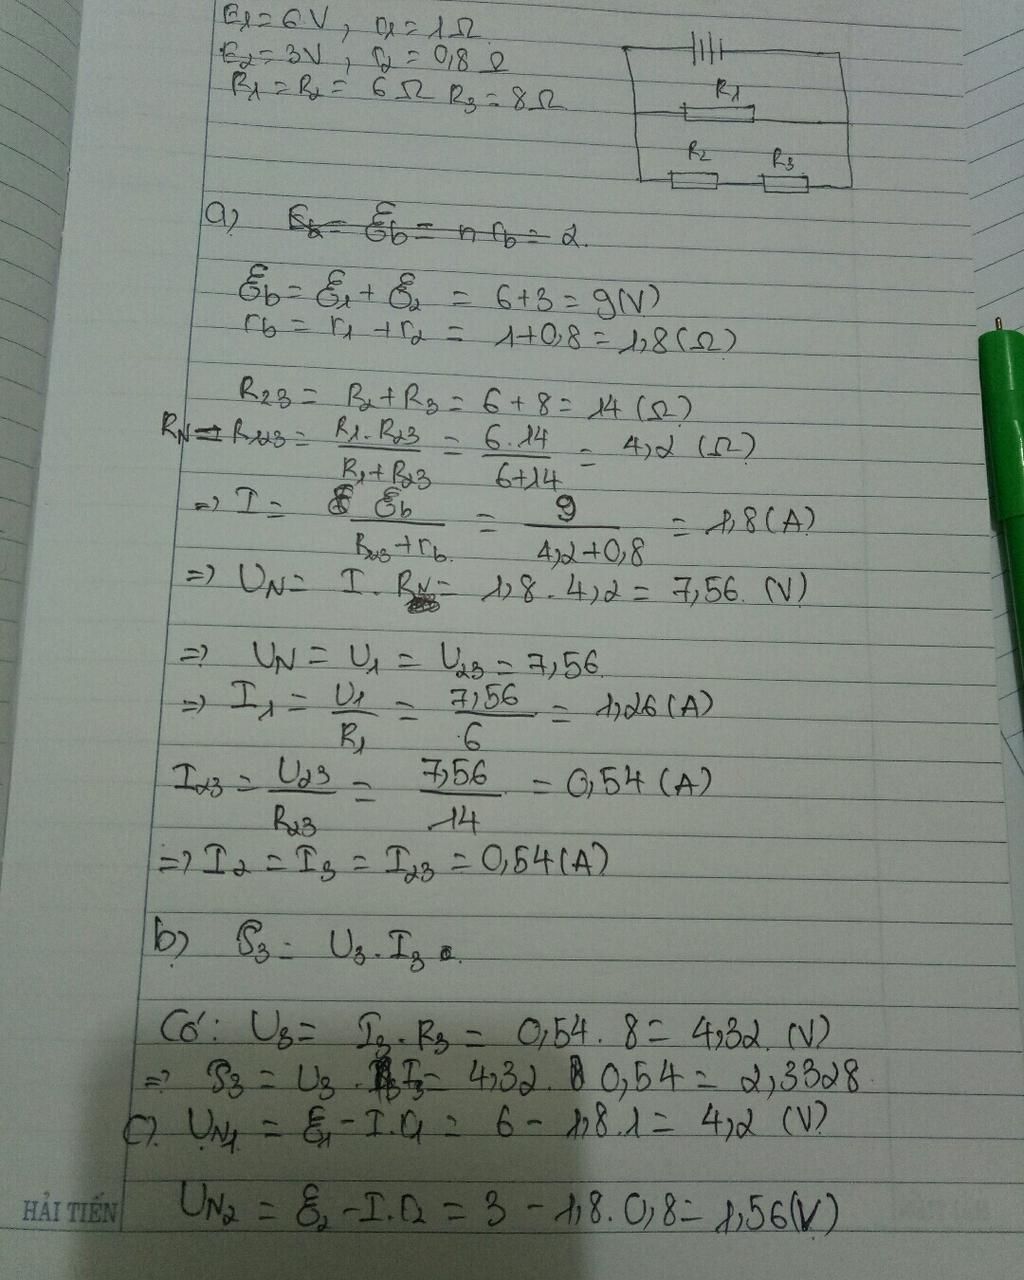 E1 = 6V, r1 = 1Ω
E2 = 3V, r2 = 0,8 Ω
R1 = R2 = 6Ω R3 = 8Ω
R1
R2 R3
a) Eb = n rb = 2.
ℰb = ℰ1 + ℰ2 = 6+3 = 9(V)
rb = r1 + r2 = 1+0,8 = 1,8(Ω)
R23 = R2 + R3 = 6 + 8 = 14 (Ω)
RN = R123 = R1.R23 / R1+R23 = 6.14 / 6+14 = 4,2 (Ω)
=> I = ℰb / R123+rb = 9 / 4,2+0,8 = 1,8(A)
=> UN = I . RN = 1,8 . 4,2 = 7,56 (V)
=> UN = U1 = U23 = 7,56
=> I1 = U1 / R1 = 7,56 / 6 = 1,26(A)
I23 = U23 / R23 = 7,56 / 14 = 0,54 (A)
=> I2 = I3 = I23 = 0,54(A)
b) P3 = U3 . I3
Có: U3 = I3 . R3 = 0,54 . 8 = 4,32 (V)
=> P3 = U3 . I3 = 4,32 . 0,54 = 2,3328
c). UN1 = ℰ1 - I.r1 = 6 - 1,8.1 = 4,2 (V)
UN2 = ℰ2 - I.r2 = 3 - 1,8.0,8 = 1,56(V)
HẢI TIẾN